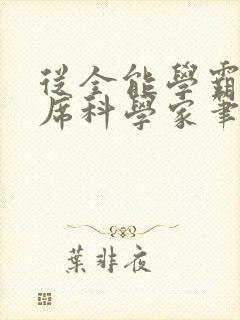 從全能學霸
席科學家筆
葉非夜